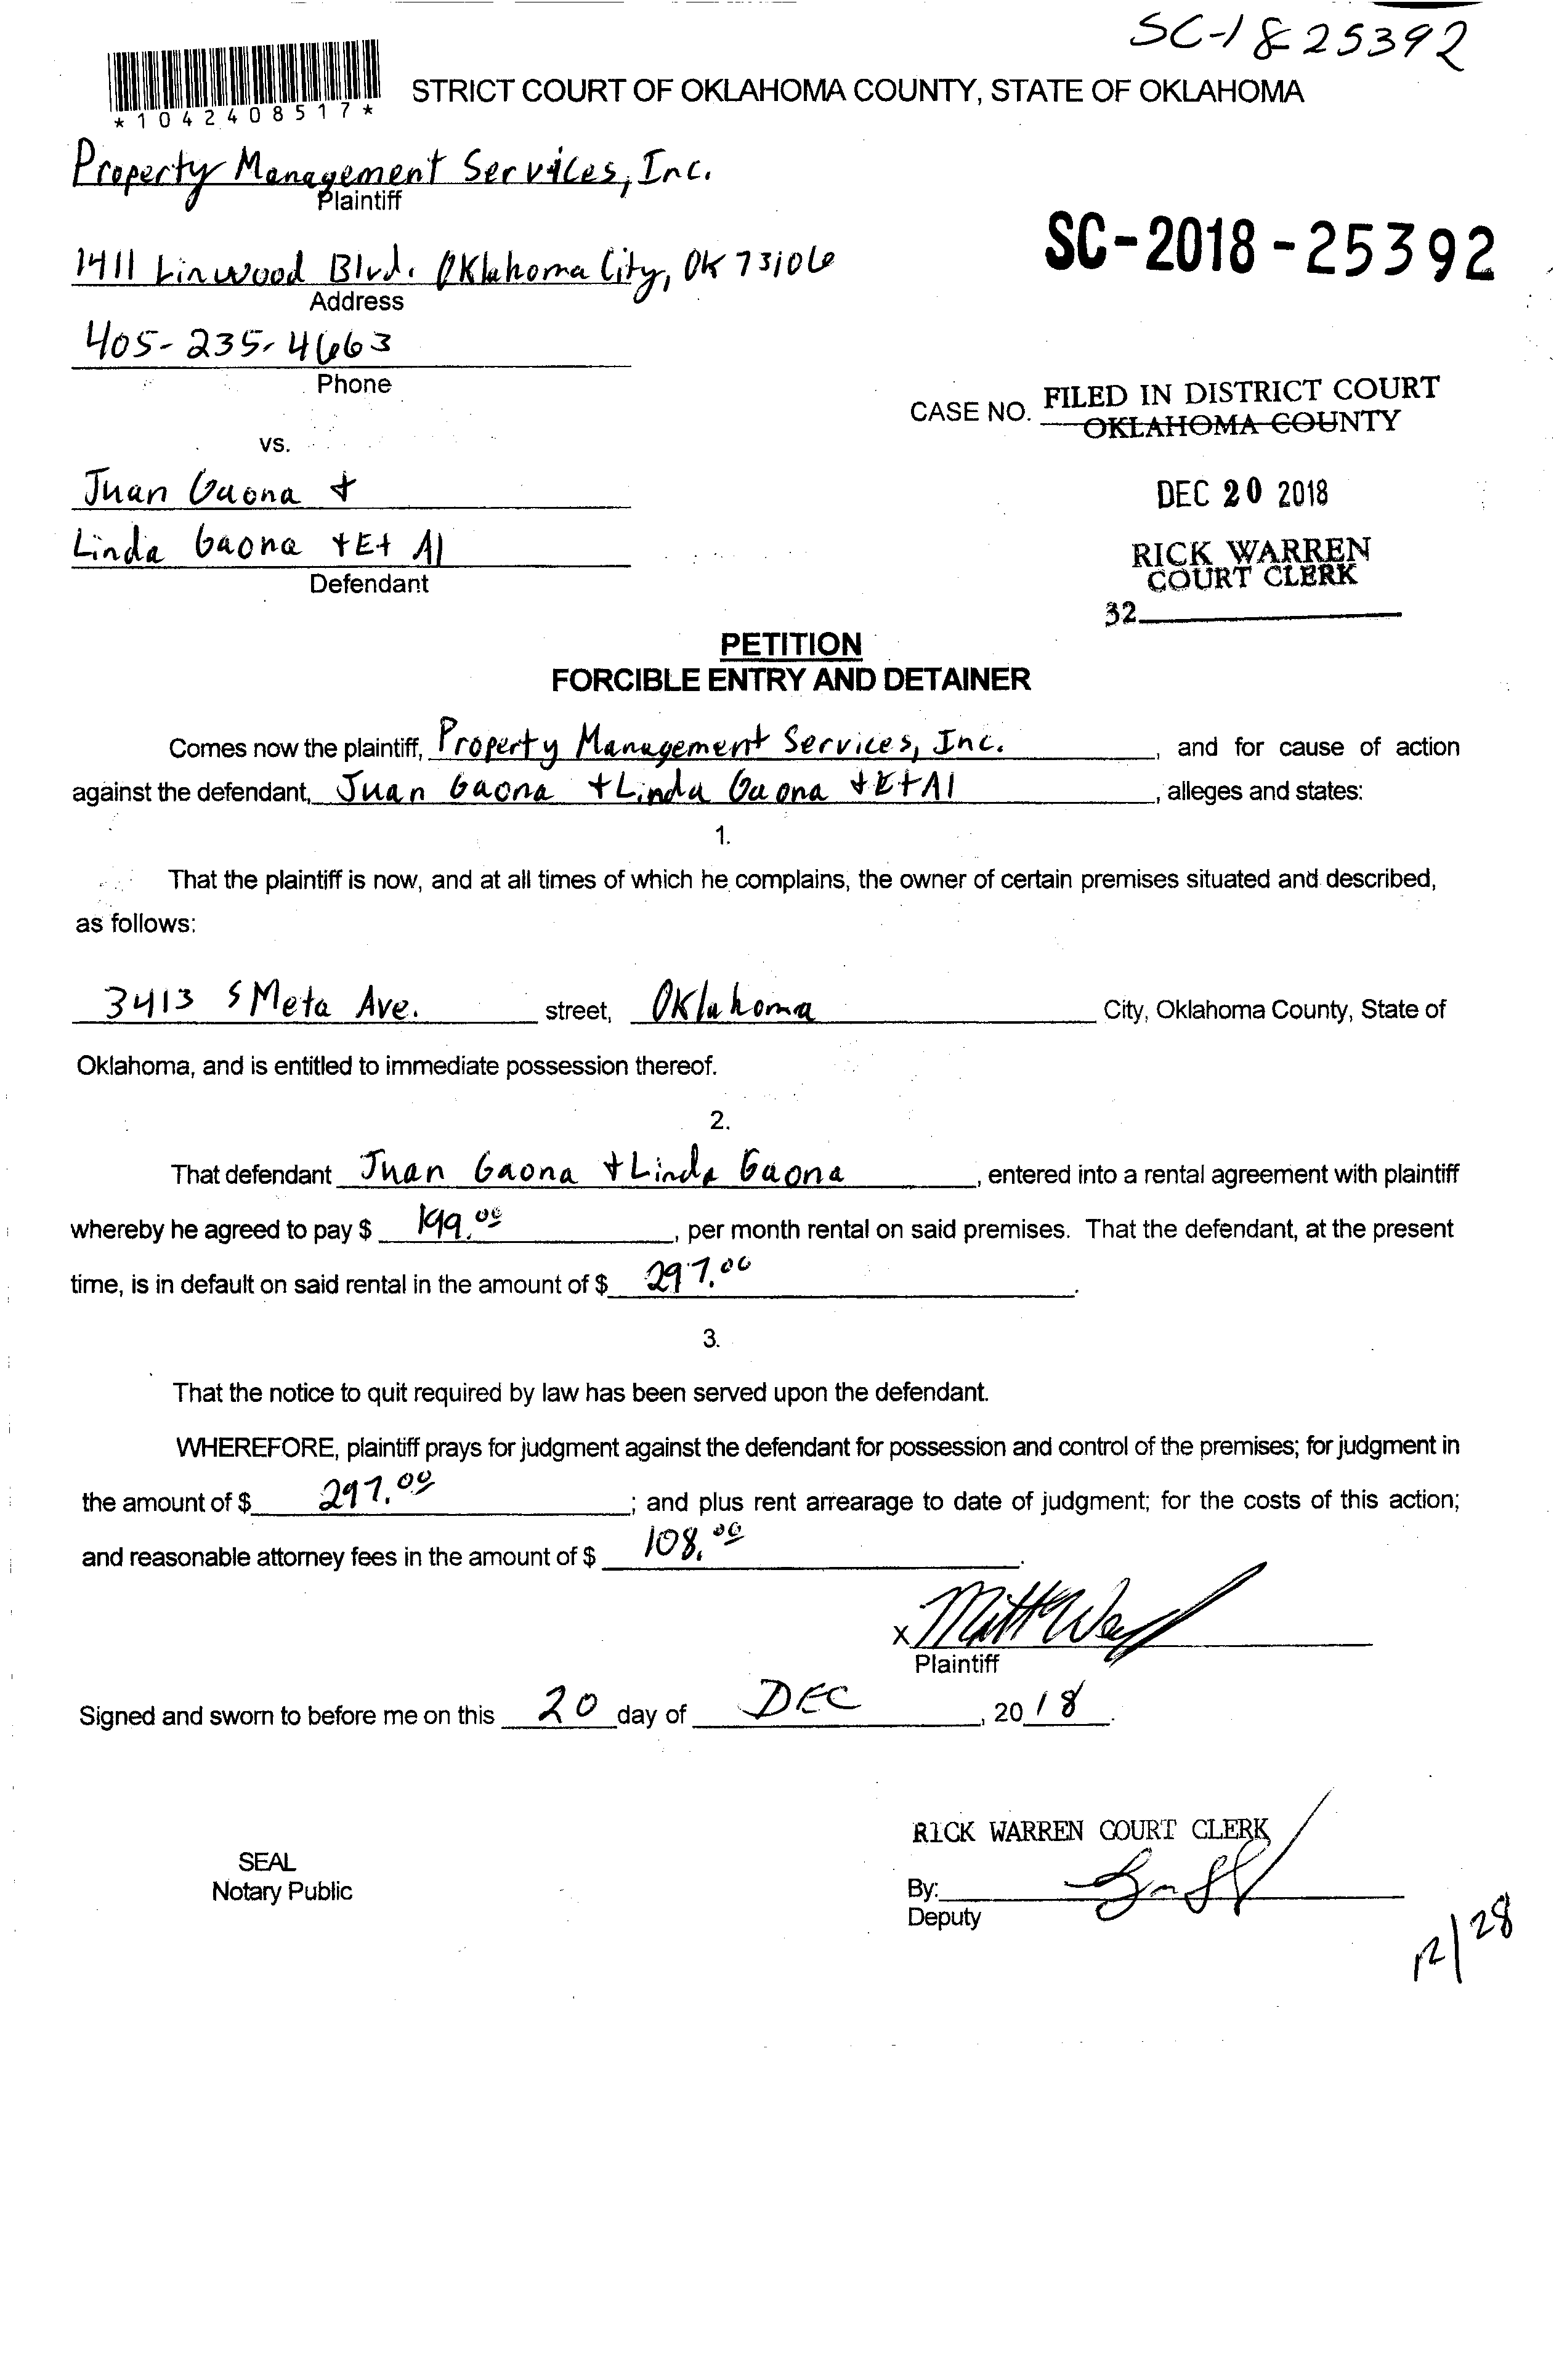 SC-1825392
STRICT COURT OF OKLAHOMA COUNTY, STATE OF OKLAHOMA
*1042408517*
Property Management Services, Inc.
Plaintiff
SC-2018-25392
1411 Linwood Blvd. Oklahoma City, OK 73106
Address
405-235-4663
Phone
CASE NO. FILED IN DISTRICT COURT
OKLAHOMA COUNTY
vs.
Juan Gaona +
DEC 20 2018
Linda Gaona + Et Al
Defendant
RICK WARREN
COURT CLERK
32
PETITION
FORCIBLE ENTRY AND DETAINER
Comes now the plaintiff, Property Management Services, Inc., and for cause of action
against the defendant, Juan Gaona + Linda Gaona + Et Al, alleges and states:
1.
That the plaintiff is now, and at all times of which he complains, the owner of certain premises situated and described,
as follows:
3413 S Meta Ave. street, Oklahoma City, Oklahoma County, State of
Oklahoma, and is entitled to immediate possession thereof.
2.
That defendant Juan Gaona + Linda Gaona, entered into a rental agreement with plaintiff
whereby he agreed to pay $ 199.00, per month rental on said premises. That the defendant, at the present
time, is in default on said rental in the amount of $ 297.00.
3.
That the notice to quit required by law has been served upon the defendant.
WHEREFORE, plaintiff prays for judgment against the defendant for possession and control of the premises; for judgment in
the amount of $ 297.00; and plus rent arrearage to date of judgment; for the costs of this action;
and reasonable attorney fees in the amount of $ 108.00.
X
Plaintiff
Signed and sworn to before me on this 20 day of DEC, 2018.
RICK WARREN COURT CLERK
SEAL
Notary Public
By:
Deputy
12/28